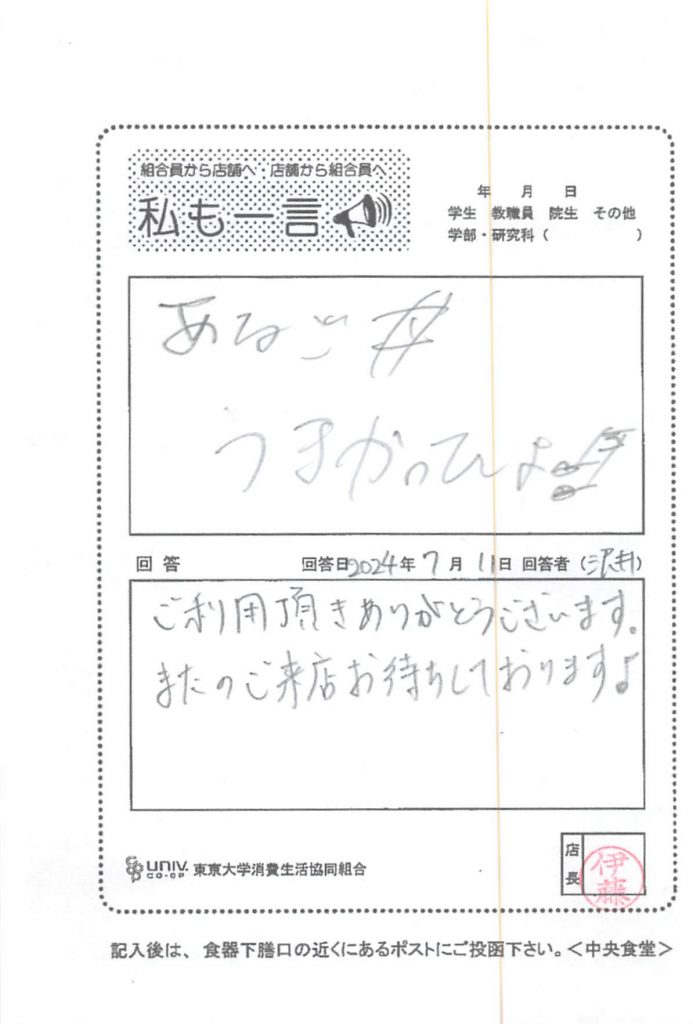 組合員から店舗へ 店舗から組合員へ
私も一言
年 月 日
学生 教職員 院生 その他
学部・研究科( )
あなご丼
うまかってん
回答 回答日2024年7月11日 回答者(沢井)
ご利用頂きありがとうございます。
またのご来店お待ちしております♪
UNIV. CO-OP 東京大学消費生活協同組合
店長 伊藤
記入後は、食器下膳口の近くにあるポストにご投函下さい。<中央食堂>